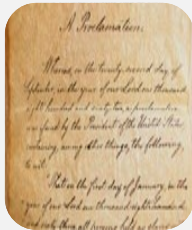 A Proclamation.
Whereas, on the twenty-second day of
September, in the year of our Lord one thousand
eight hundred and sixty-two, a proclamation
was issued by the President of the United States,
containing, among other things, the following,
to wit:
"That on the first day of January, in the
year of our Lord one thousand eight hundred
and sixty-three, all persons held as slaves